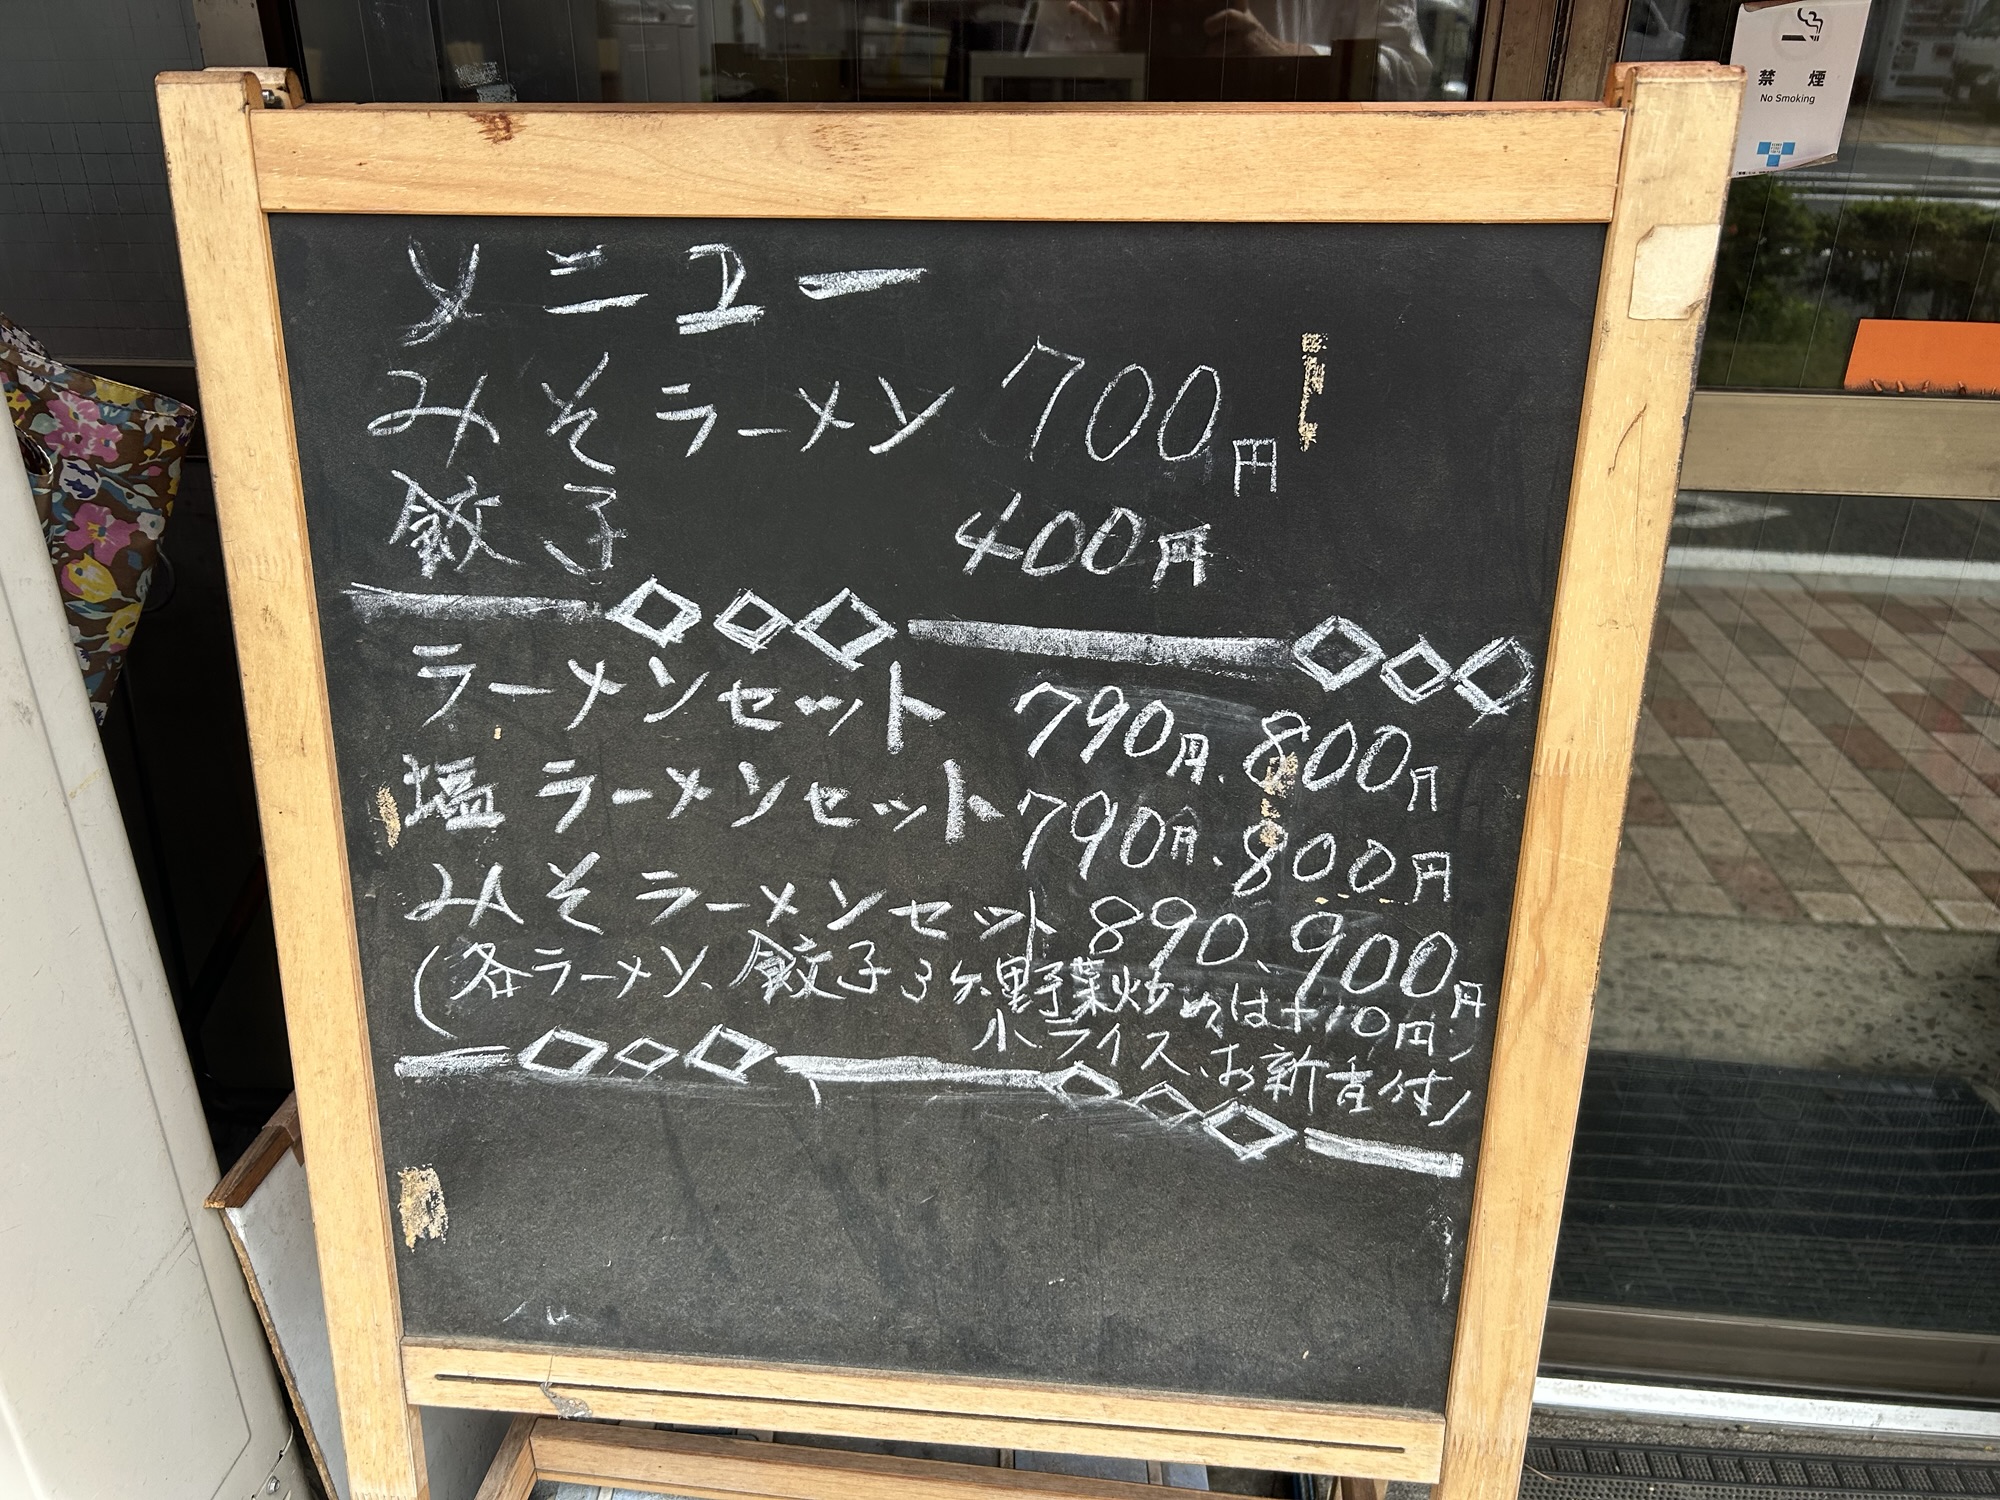 メニュー
みそラーメン 700円
餃子 400円
ラーメンセット 790円、800円
塩ラーメンセット 790円、800円
みそラーメンセット 890、900円
(各ラーメン、餃子3ヶ、野菜炒めは+10円)
小ライス、お新香付)
禁煙
No Smoking